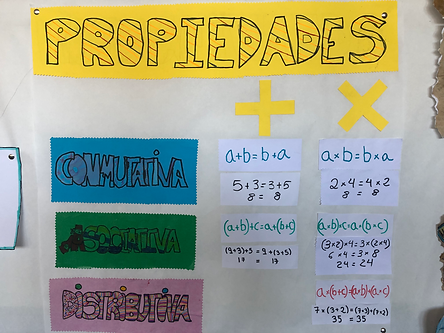 PROPIEDADES
+ ×
CONMUTATIVA
a+b=b+a
5+3=3+5
8 = 8
a×b=b×a
2×4=4×2
8 = 8
ASOCIATIVA
(a+b)+c=a+(b+c)
(9+3)+5=9+(3+5)
17 = 17
(a×b)×c=a×(b×c)
(3×2)×4=3×(2×4)
6×4=3×8
24=24
DISTRIBUTIVA
a×(b+c)=(a×b)+(a×c)
7×(3+2)=(7×3)+(7×2)
35 = 35